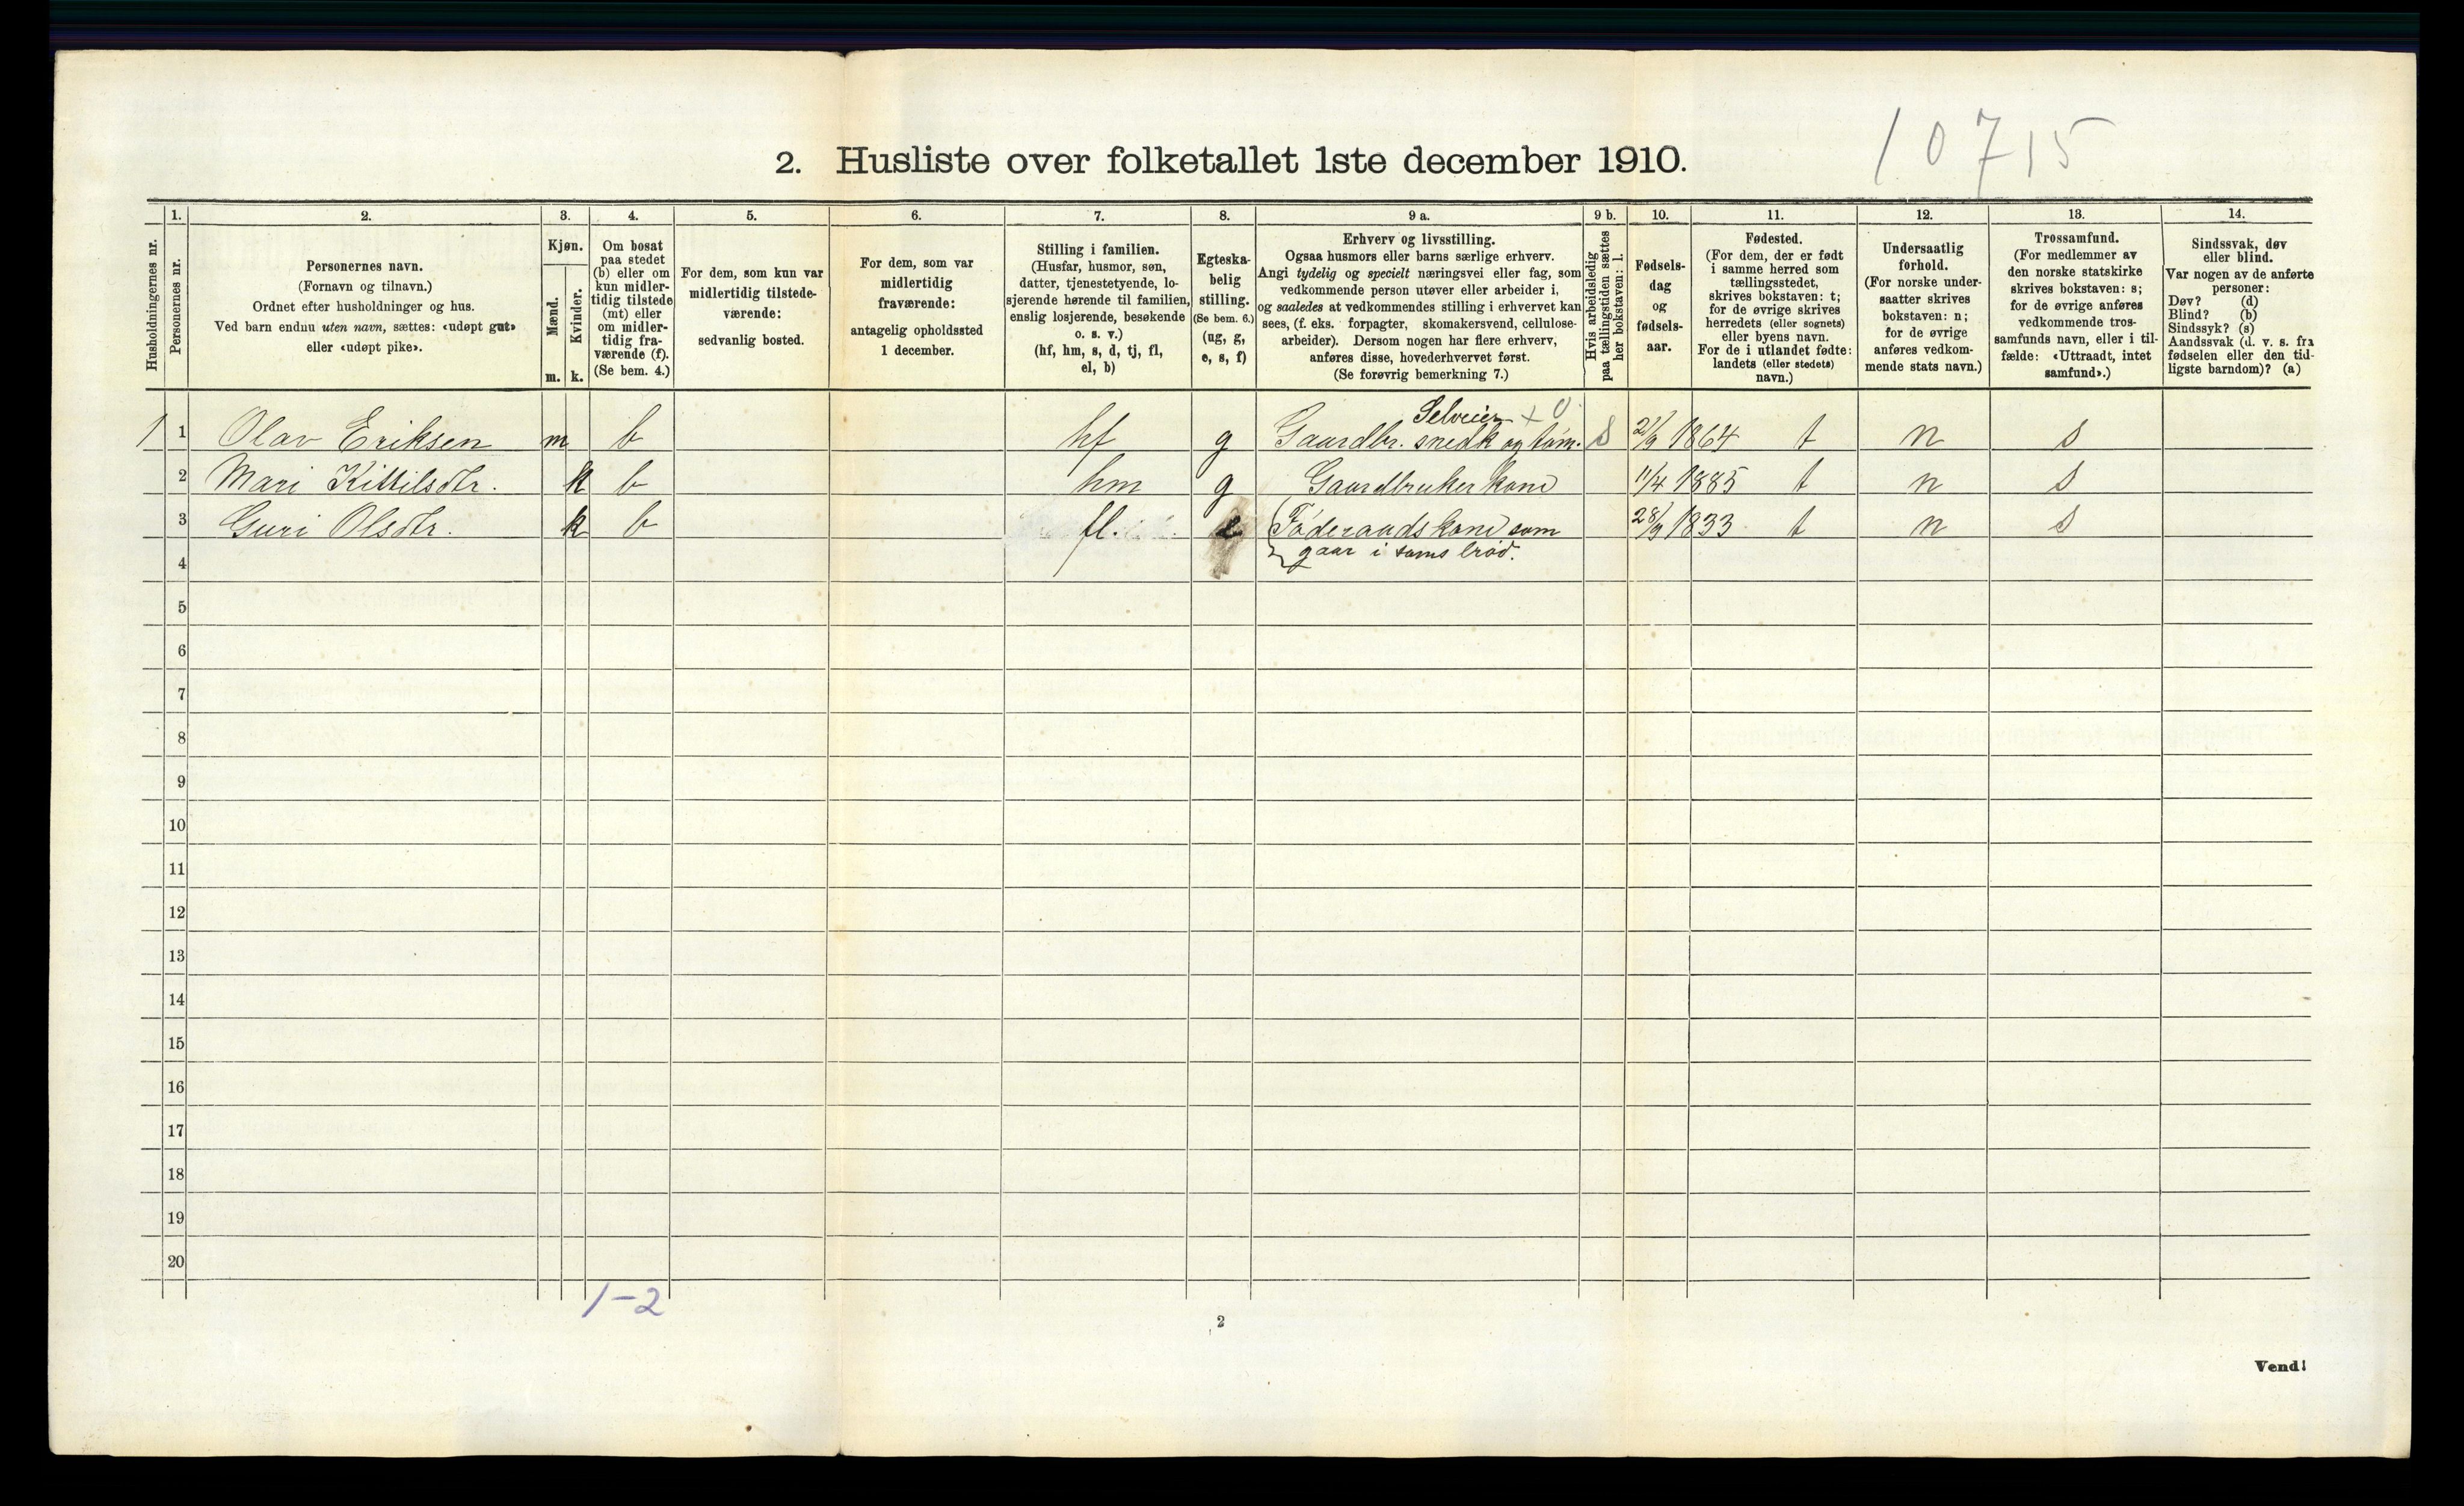 10715
2. Husliste over folketallet 1ste december 1910.
Husholdningernes nr.
1.
Personernes nr.
2.
Personernes navn.
(Fornavn og tilnavn.)
Ordnet efter husholdninger og hus.
Ved barn endnu uten navn, sættes: «udøpt gut»
eller «udøpt pike».
3.
Kjøn.
Mænd.
Kvinder.
m. k.
4.
Om bosat
paa stedet
(b) eller om
kun midler-
tidig tilstede
(mt) eller
om midler-
tidig fra-
værende (f).
(Se bem. 4.)
5.
For dem, som kun var
midlertidig tilstede-
værende:
sedvanlig bosted.
6.
For dem, som var
midlertidig
fraværende:
antagelig opholdssted
1 december.
7.
Stilling i familien.
(Husfar, husmor, søn,
datter, tjenestetyende, lo-
sjerende hørende til familien,
enslig losjerende, besøkende
o. s. v.)
(hf, hm, s, d, tj, fl,
el, b)
8.
Egteska-
belig
stilling.
(Se bem. 6.)
(ug, g,
e, s, f)
9 a.
Erhverv og livsstilling.
Ogsaa husmors eller barns særlige erhverv.
Angi tydelig og specielt næringsvei eller fag, som
vedkommende person utøver eller arbeider i,
og saaledes at vedkommendes stilling i erhvervet kan
sees, (f. eks. forpagter, skomakersvend, cellulose-
arbeider). Dersom nogen har flere erhverv,
anføres disse, hovederhvervet først.
(Se forøvrig bemerkning 7.)
9 b.
Hvis arbeidsledig
paa tællingstiden sættes
her bokstaven: l.
10.
Fødsels-
dag
og
fødsels-
aar.
11.
Fødested.
(For dem, der er født
i samme herred som
tællingsstedet,
skrives bokstaven: t;
for de øvrige skrives
herredets (eller sognets)
eller byens navn.
For de i utlandet fødte:
landets (eller stedets)
navn.)
12.
Undersaatlig
forhold.
(For norske under-
saatter skrives
bokstaven: n;
for de øvrige
anføres vedkom-
mende stats navn.)
13.
Trossamfund.
(For medlemmer av
den norske statskirke
skrives bokstaven: s;
for de øvrige anføres
vedkommende tros-
samfunds navn, eller i til-
fælde: «Uttraadt, intet
samfund».)
14.
Sindssvak, døv
eller blind.
Var nogen av de anførte
personer:
Døv? (d)
Blind? (b)
Sindssyk? (s)
Aandssvak (d. v. s. fra
fødselen eller den tid-
ligste barndom)? (a)
Selveier + 0
1 1 Olav Eriksen m b hf g Gaardbr. snedk og tøm. s 1864 t n s
2 Mari Kittilsdtr. k b hm g Gaardbruker kone 11/4 1885 t n s
3 Guri Olsdtr. k b fl. e Føderaadskone som 28/9 1833 t n s
gaar i sams brød.
4
5
6
7
8
9
10
11
12
13
14
15
16
17
18
19
20
1-2
2
Vend!